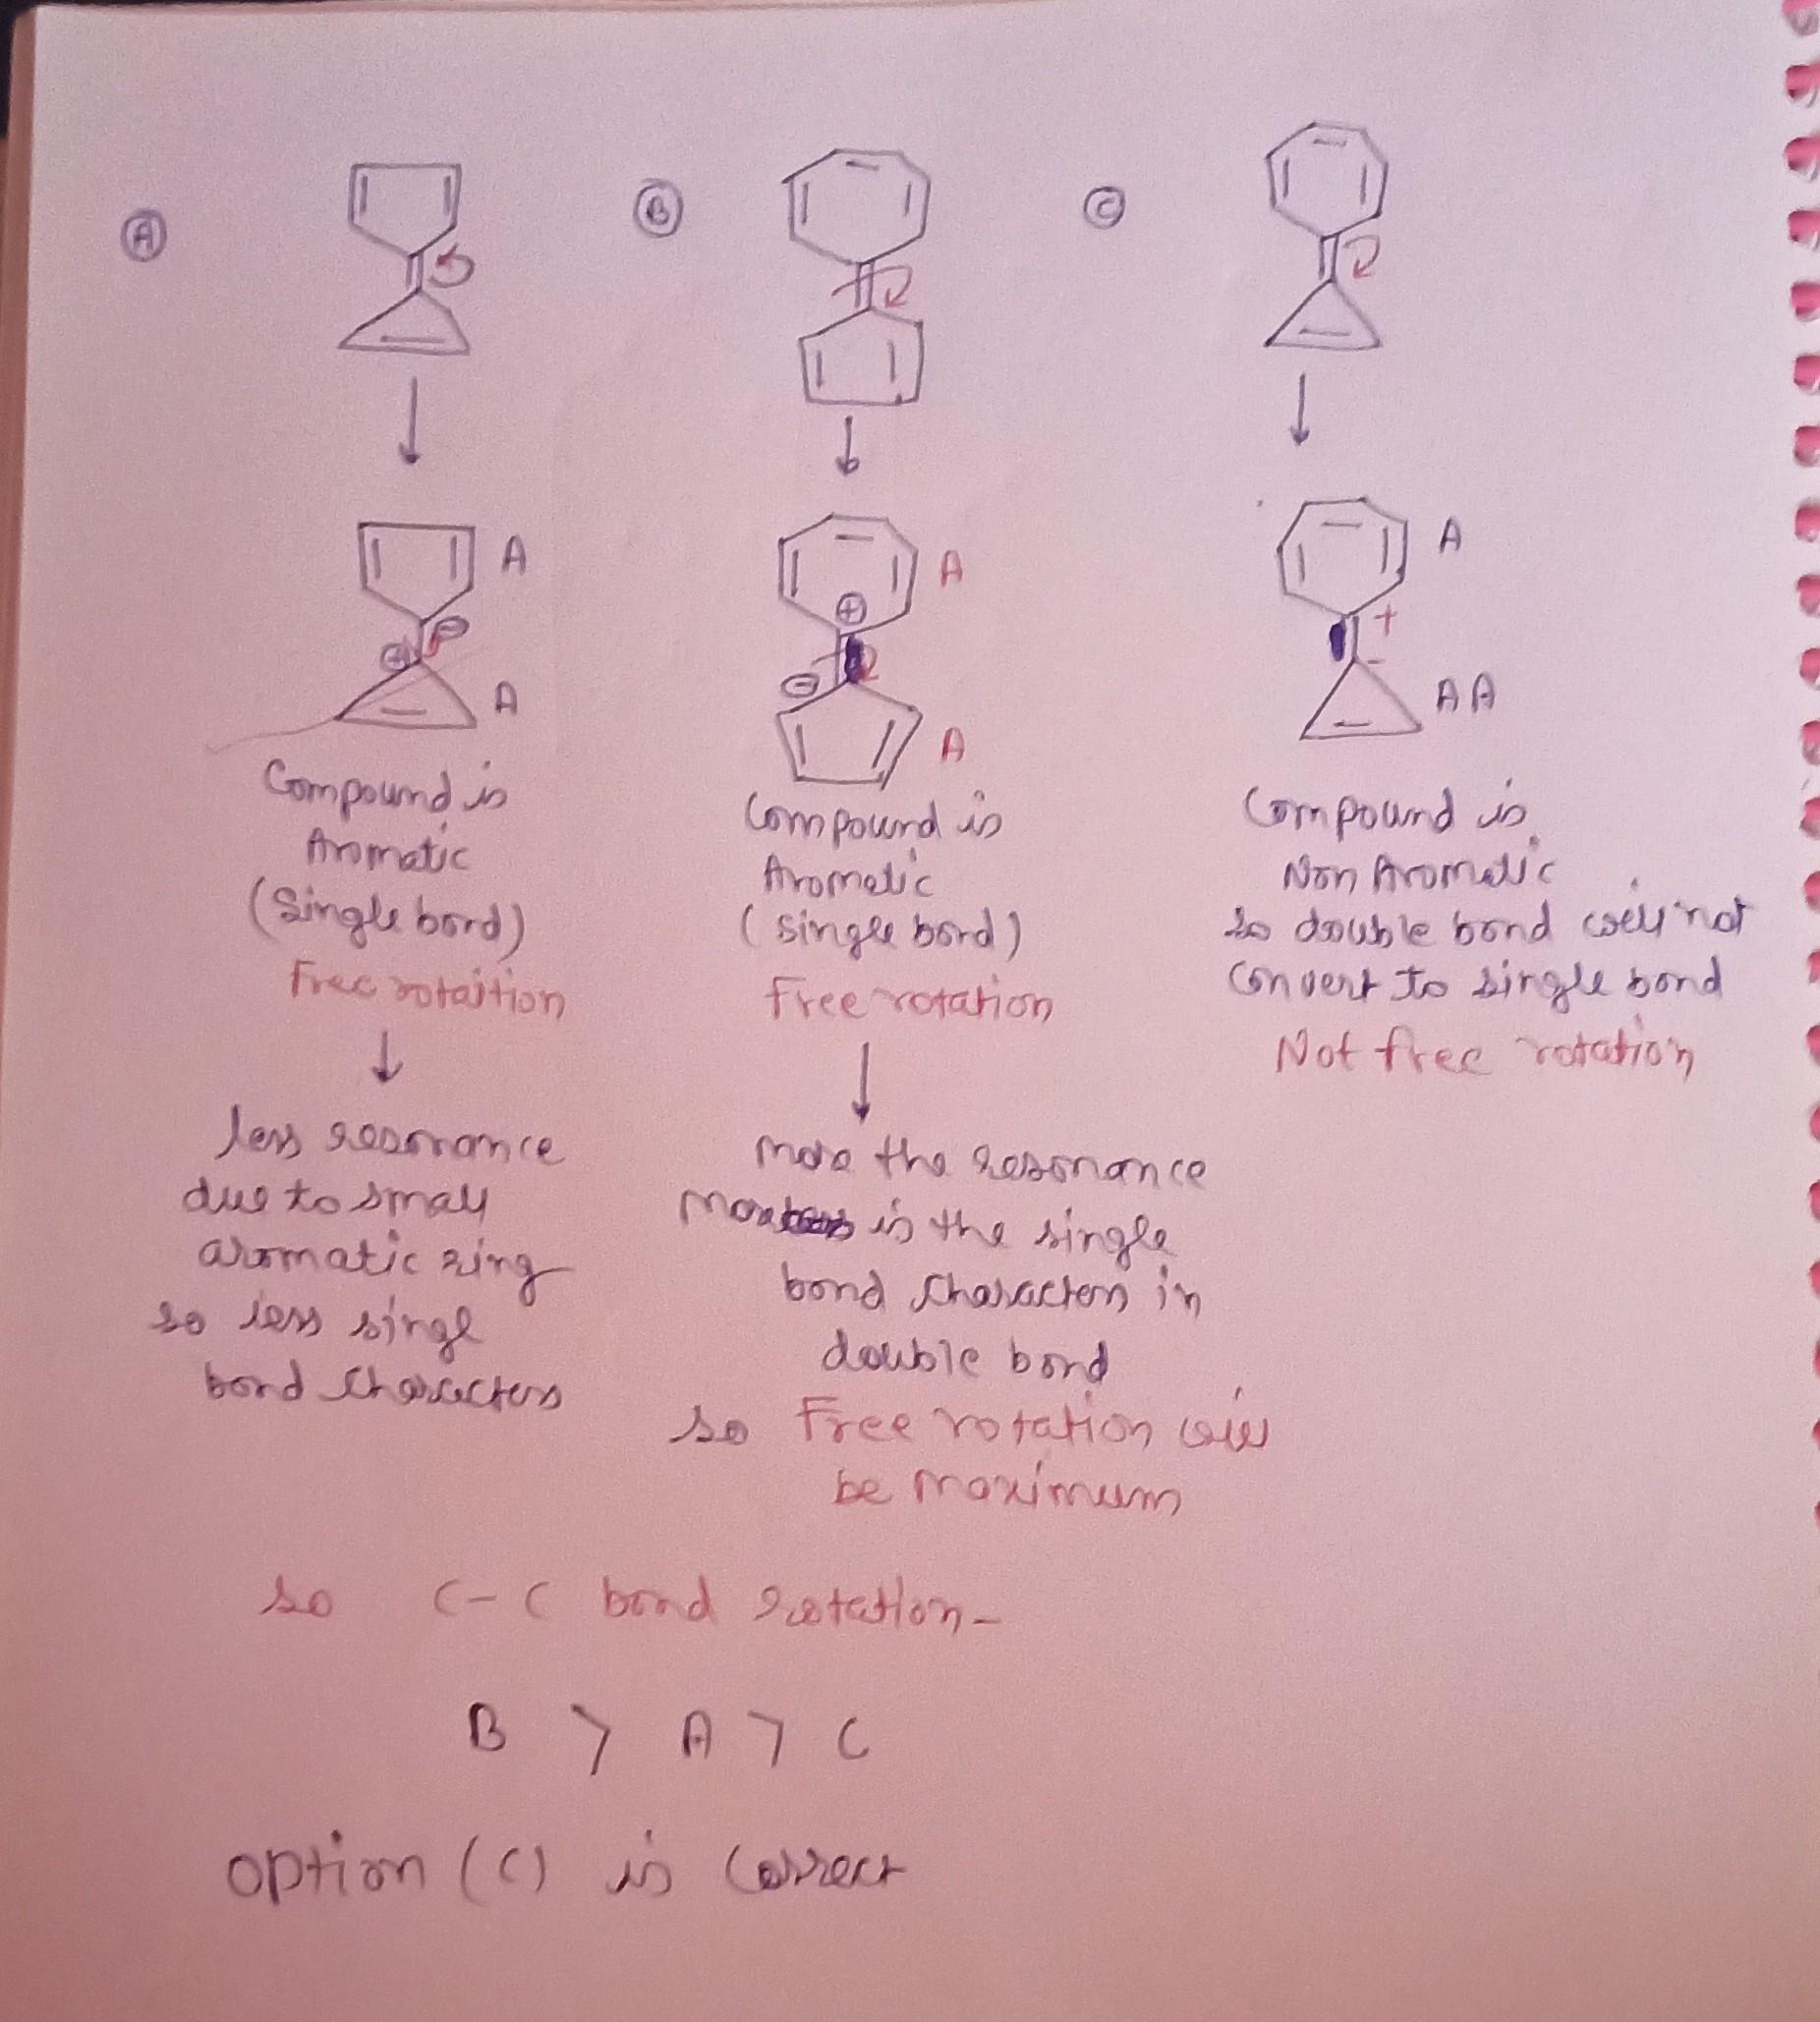 A
B
C
A
A
⊖
⊕
A
⊕
⊖
A
A
+
-
AA
Compound is
Aromatic
(Single bond)
Free rotaition
less resonance
due to small
aromatic ring
so less singl
bond characters
Compound is
Aromatic
(single bond)
Free rotation
more the resonance
More is the single
bond characters in
double bond
so Free rotation will
be maximum
Compound is
Non Aromatic
so double bond will not
convert to single bond
Not free rotation
so C-C bond rotation-
B > A > C
option (C) is correct